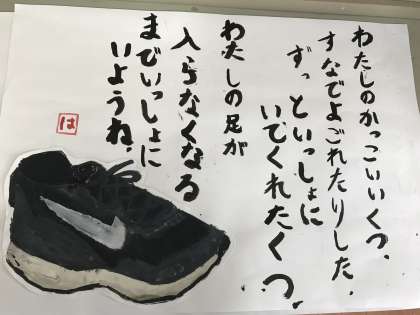 わたしのかっこいいくつ、
すなでよごれたりした、
ずっといっしょに
いてくれたくつ、
わたしの足が
入らなくなる
まで いっしょに
いようね、
は